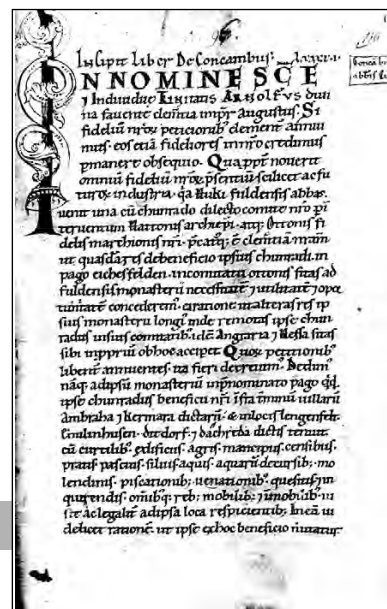 Incipit Liber De Concambiis
IN NOMINE SCE
& Individuę Trinitatis Arnolfus diui
na fauente clem̅tia imp̅r augustus. Si
fideliū nr̅ox peticionib; clement̅ annui
mus. eos etiā fideliores in nr̅o credimus
p̅manere obsequio. Qua ppt̅ nouerit
omniū fideliū nr̅ox p̅sentiū scilicet ac fu
turox industria. qa Huki fuldensis abbas.
uenit una cū chunrado dilecto comite nr̅o p̅
teruentum Hattonis archiep̅i. atq; Ottonis fi
delis marchionis nr̅i.
ut quasdā res de beneficio ipsius chunradi. in
pago eichesfelden. in comitatu ottonis sitas ad
fuldensis monasterii necessitatē & utilitatē & opor
tunitatē concederem̅. ea ratione in alteras res ip
sius monasterii longi inde remotas ipse chun
radus in suis comitatib; idē Angraria & Hessa sitas
sibi in ppriū ob hoc acciperet. Quox petitionib;
libent̅ annuentes. ita fieri decreuim̅. Dedim̅
naq; ad ipsū monasteriū in p̅nominato pago qd̅
ipse chunradus beneficii nr̅i infra t̅minū uillarū
Ambraha & Kermara dictarū. & in locis lengenfelt.
Emilinhusen. dietdorf. & dachreda dictis tenuit
cū curtilib; ędificiis. agris. mancipiis. censibus.
pratis pascuis. siluis aquis. aquarū decursib; mo
lendinis. piscationib; uenationib; quesitis & in
quirendis. omib; q; reb; mobilib; & inmobilib; iu
ste ac legalit̅ ad ipsa loca respicientib; In eā ui
delicet rationē. ut ipse ex hoc beneficio